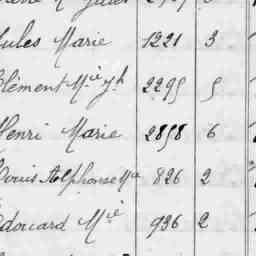 Jules Marie 1221 3
Clément Mie Jh 2295 5
Henri Marie 2858 6
Louis Alphonse Mie 826 2
Edouard Mie 936 2